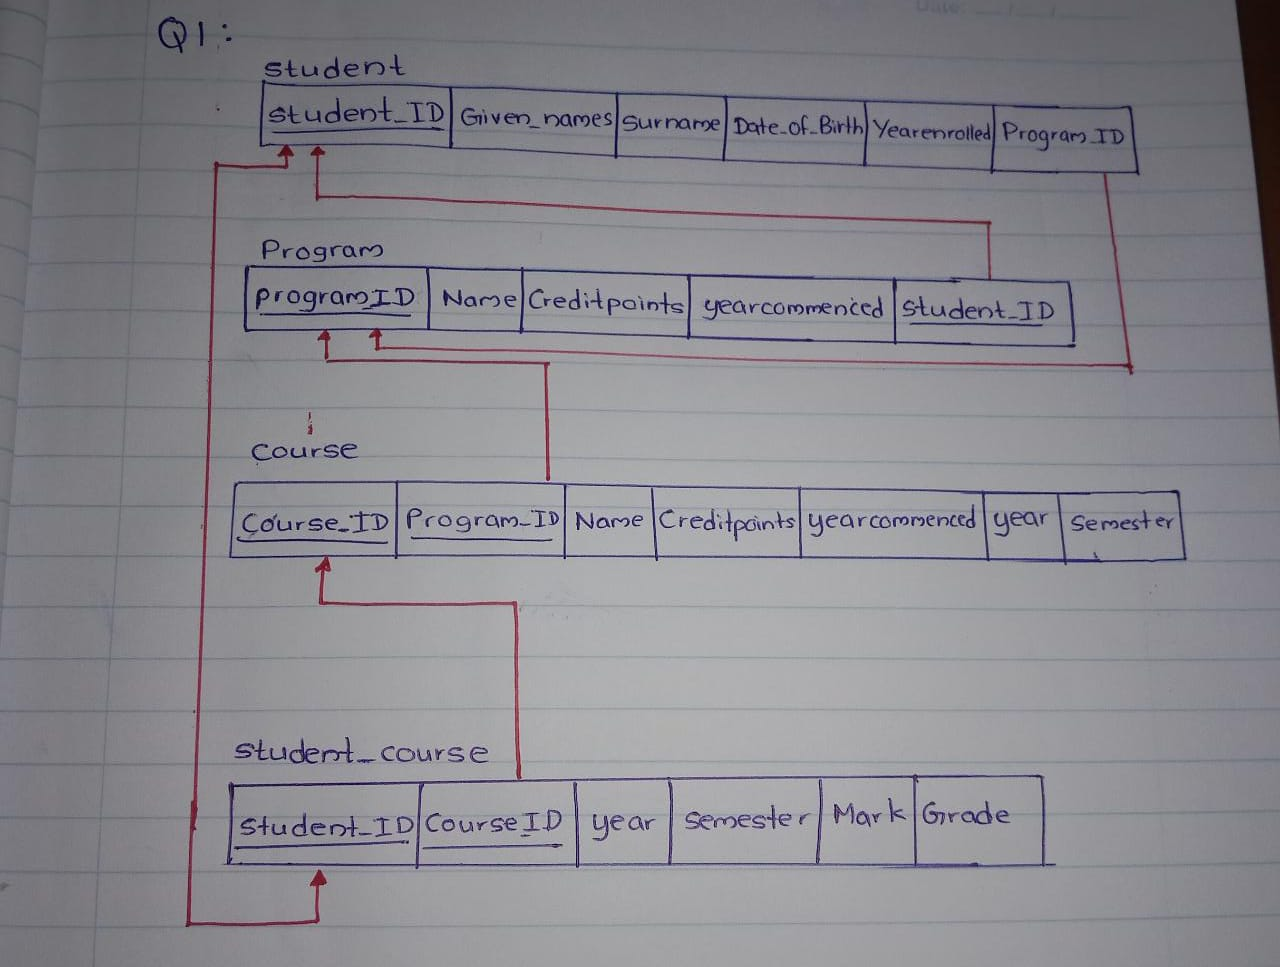 Date:
Q1:
Student
Student_ID Given_names Surname Date_of_Birth Yearenrolled Program_ID
Program
ProgramID Name Creditpoints yearcommenced Student_ID
Course
Course_ID Program_ID Name Creditpoints yearcommenced year Semester
Student_course
Student_ID CourseID year Semester Mark Grade